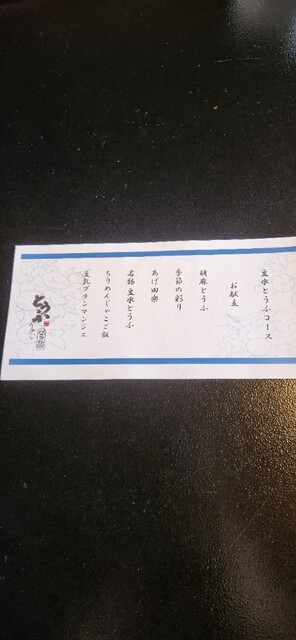 豆水とうふコース
お献立
胡麻とうふ
季節の彩り
あげ田楽
名物豆水とうふ
ちりめんじゃこご飯
豆乳ブランマンジェ
とうふ
うかい